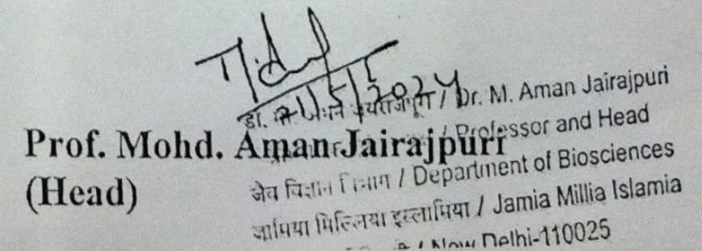 21/5/2024
डा. / Dr. M. Aman Jairajpuri
Prof. Mohd. Aman Jairajpuri
/ Professor and Head
(Head)
जैव विज्ञान विभाग / Department of Biosciences
जामिया मिल्लिया इस्लामिया / Jamia Millia Islamia
/ New Delhi-110025